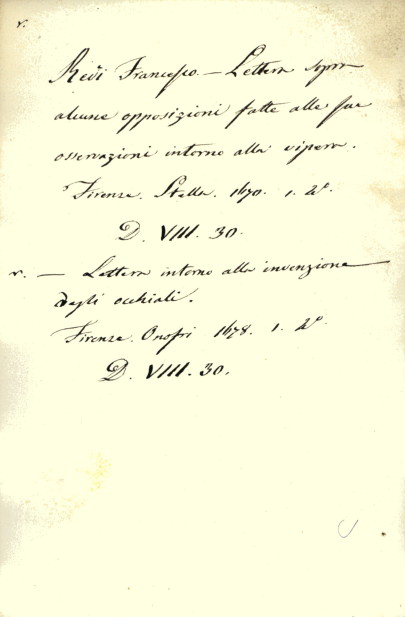 v.
Redi Francesco. — Lettera sopra
alcune opposizioni fatte alle sue
osservazioni intorno alla vipera.
Firenze. Stella. 1670. 1. 4°.
D. VIII. 30.
v. — Lettera intorno alla invenzione
degli occhiali.
Firenze. Onofri 1678. 1. 4°.
D. VIII. 30.